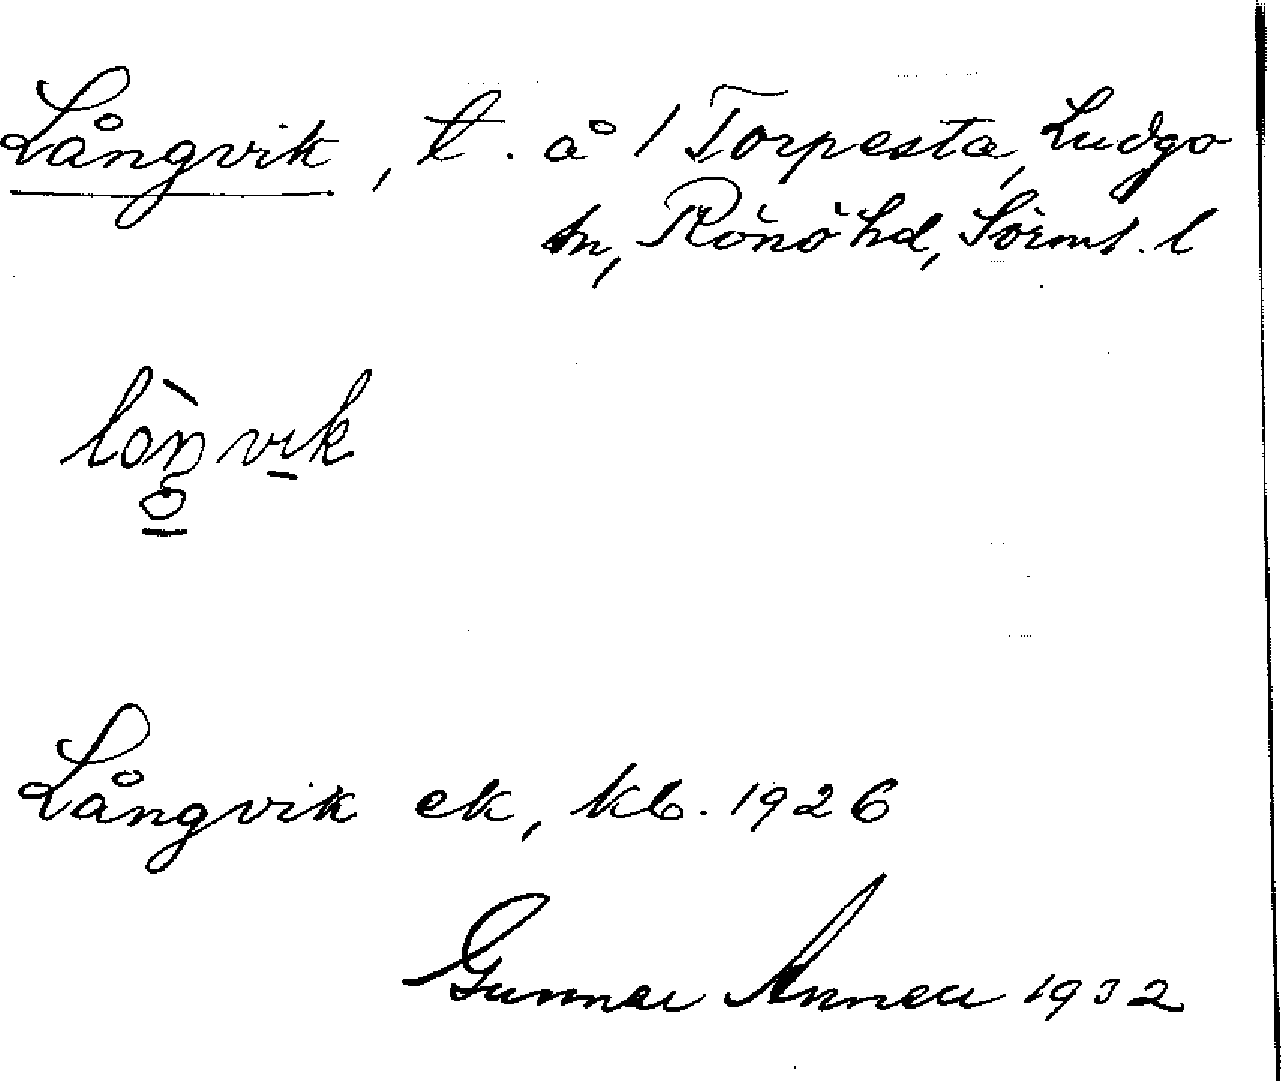 Långvik, t. å / Torpesta, Ludgo
sn, Rönö hd, Sörml. l
lòŋvik
Långvik ek, kb. 1926
Gunnar 1932